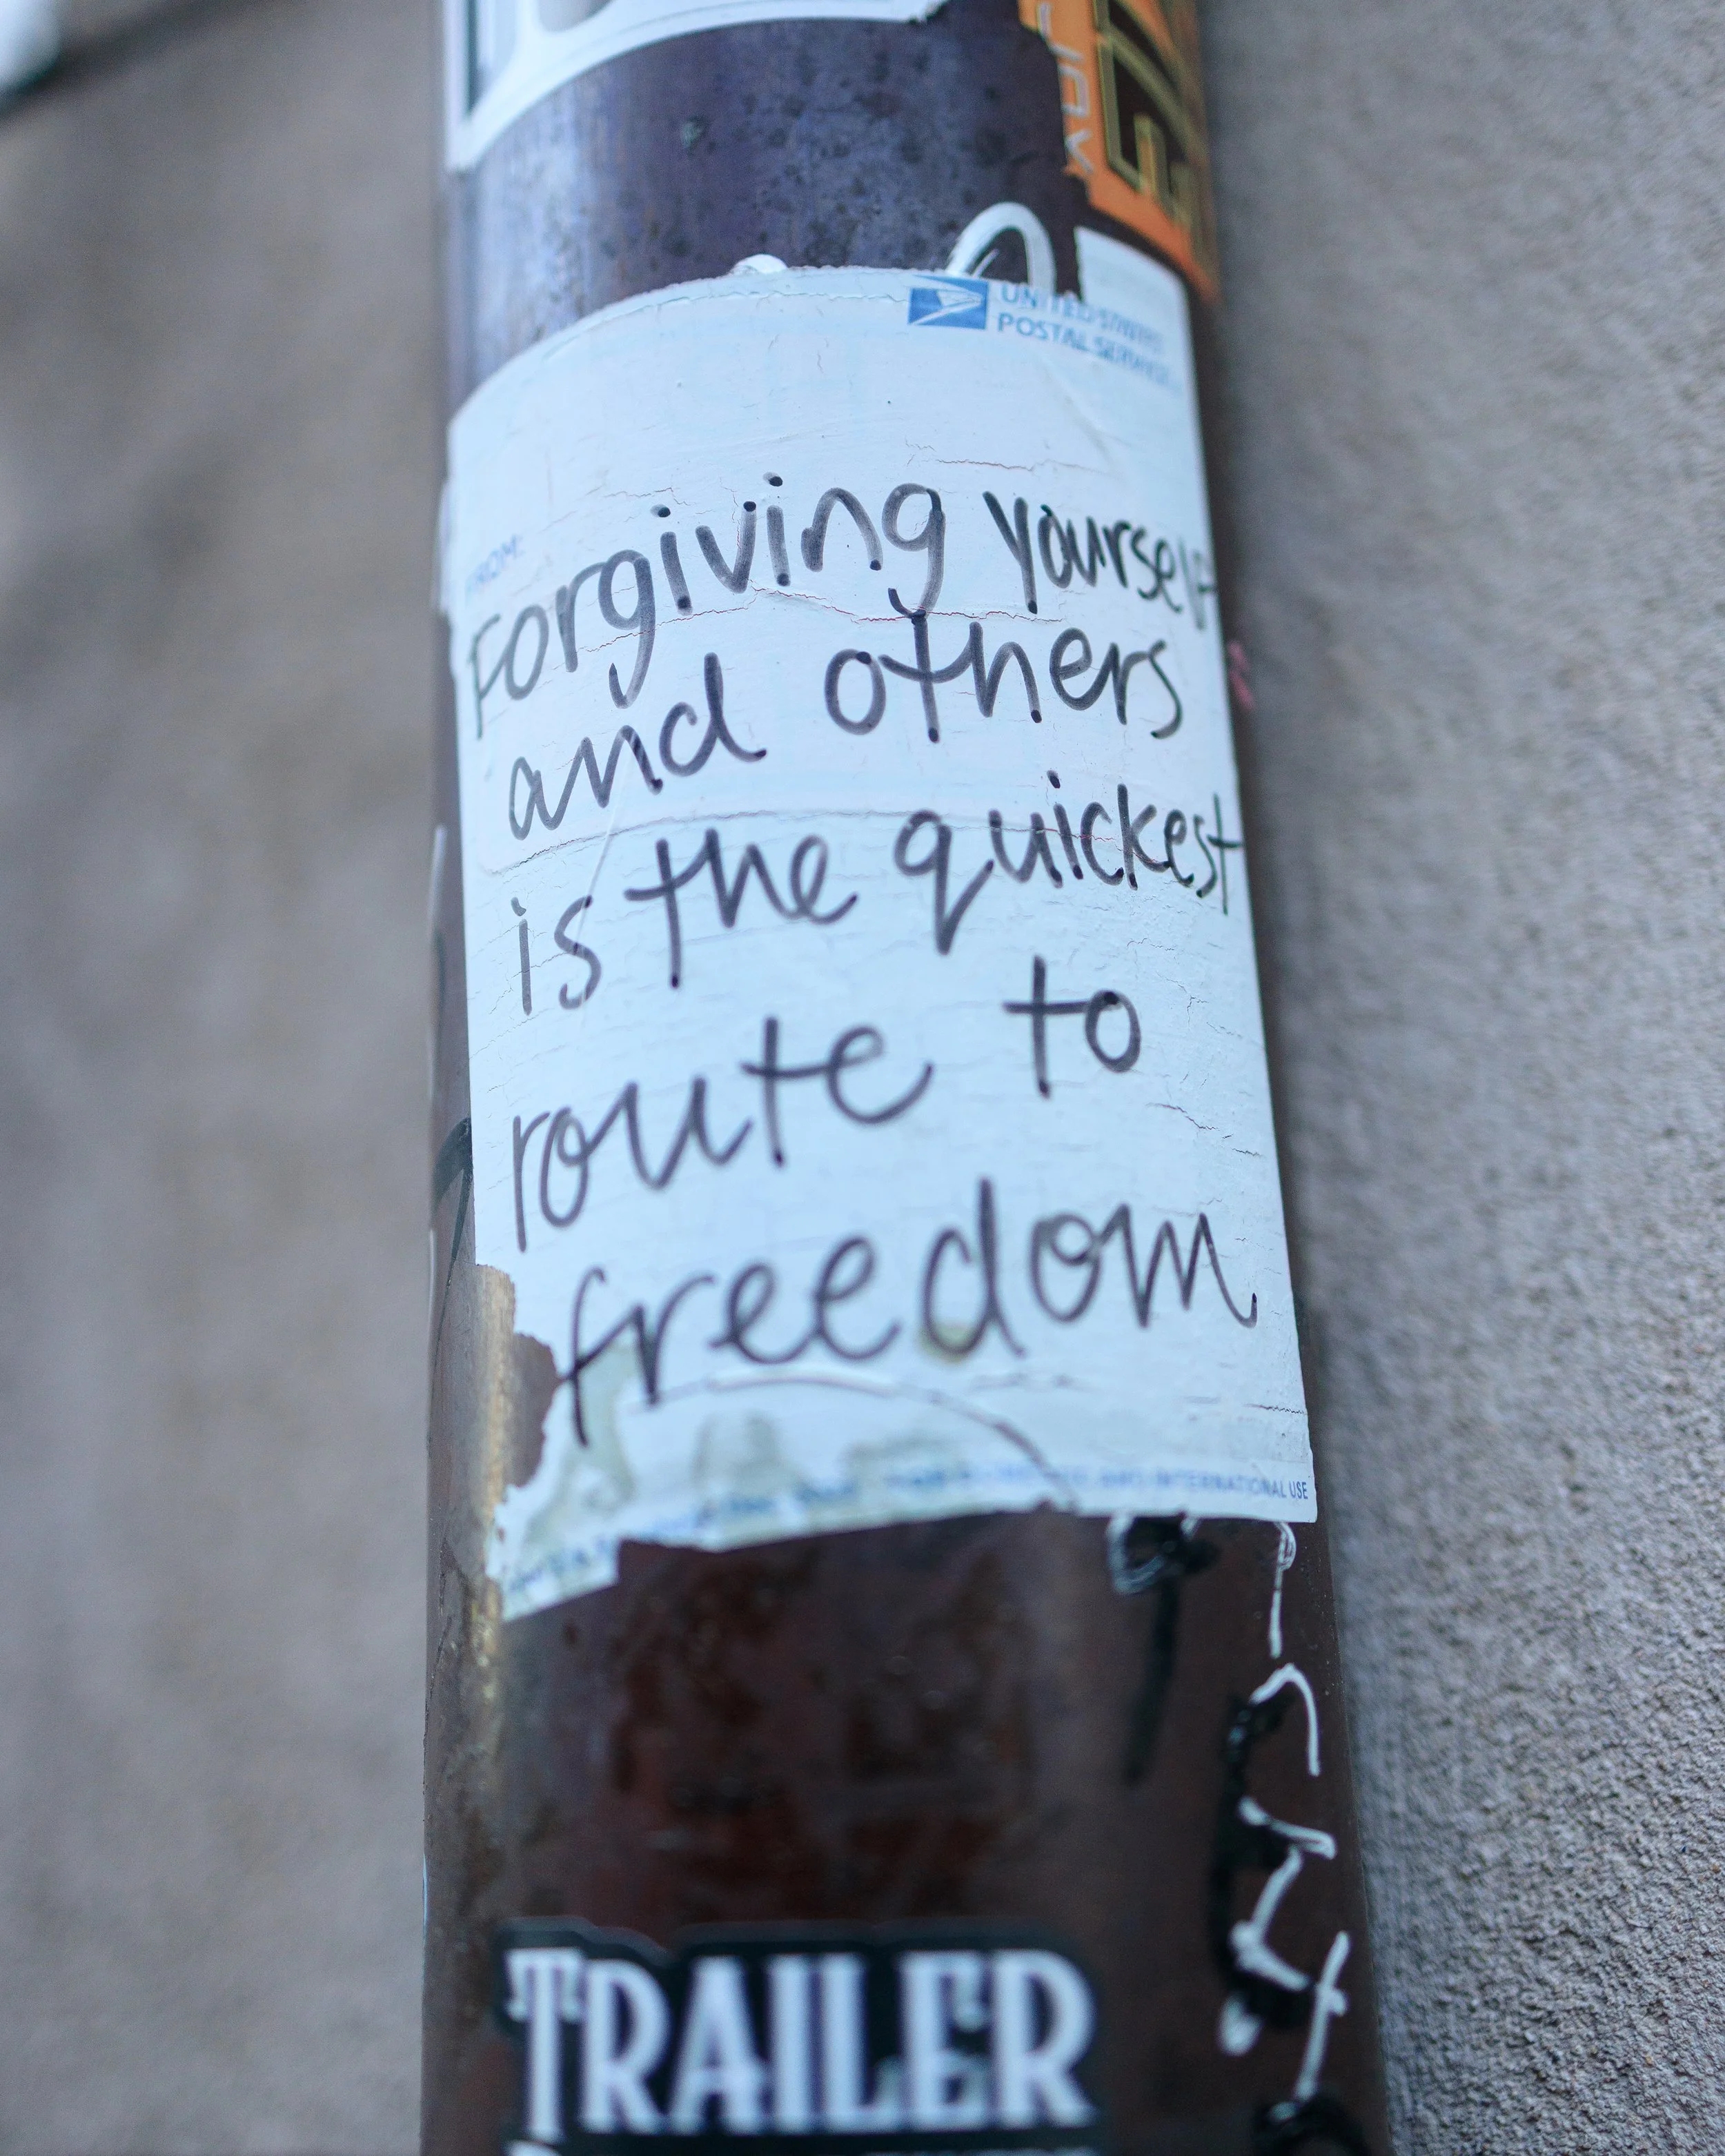 UNITED STATES
POSTAL SERVICE
FROM:
Forgiving yourself
and others
is the quickest
route to
freedom
INTERNATIONAL USE
TRAILER